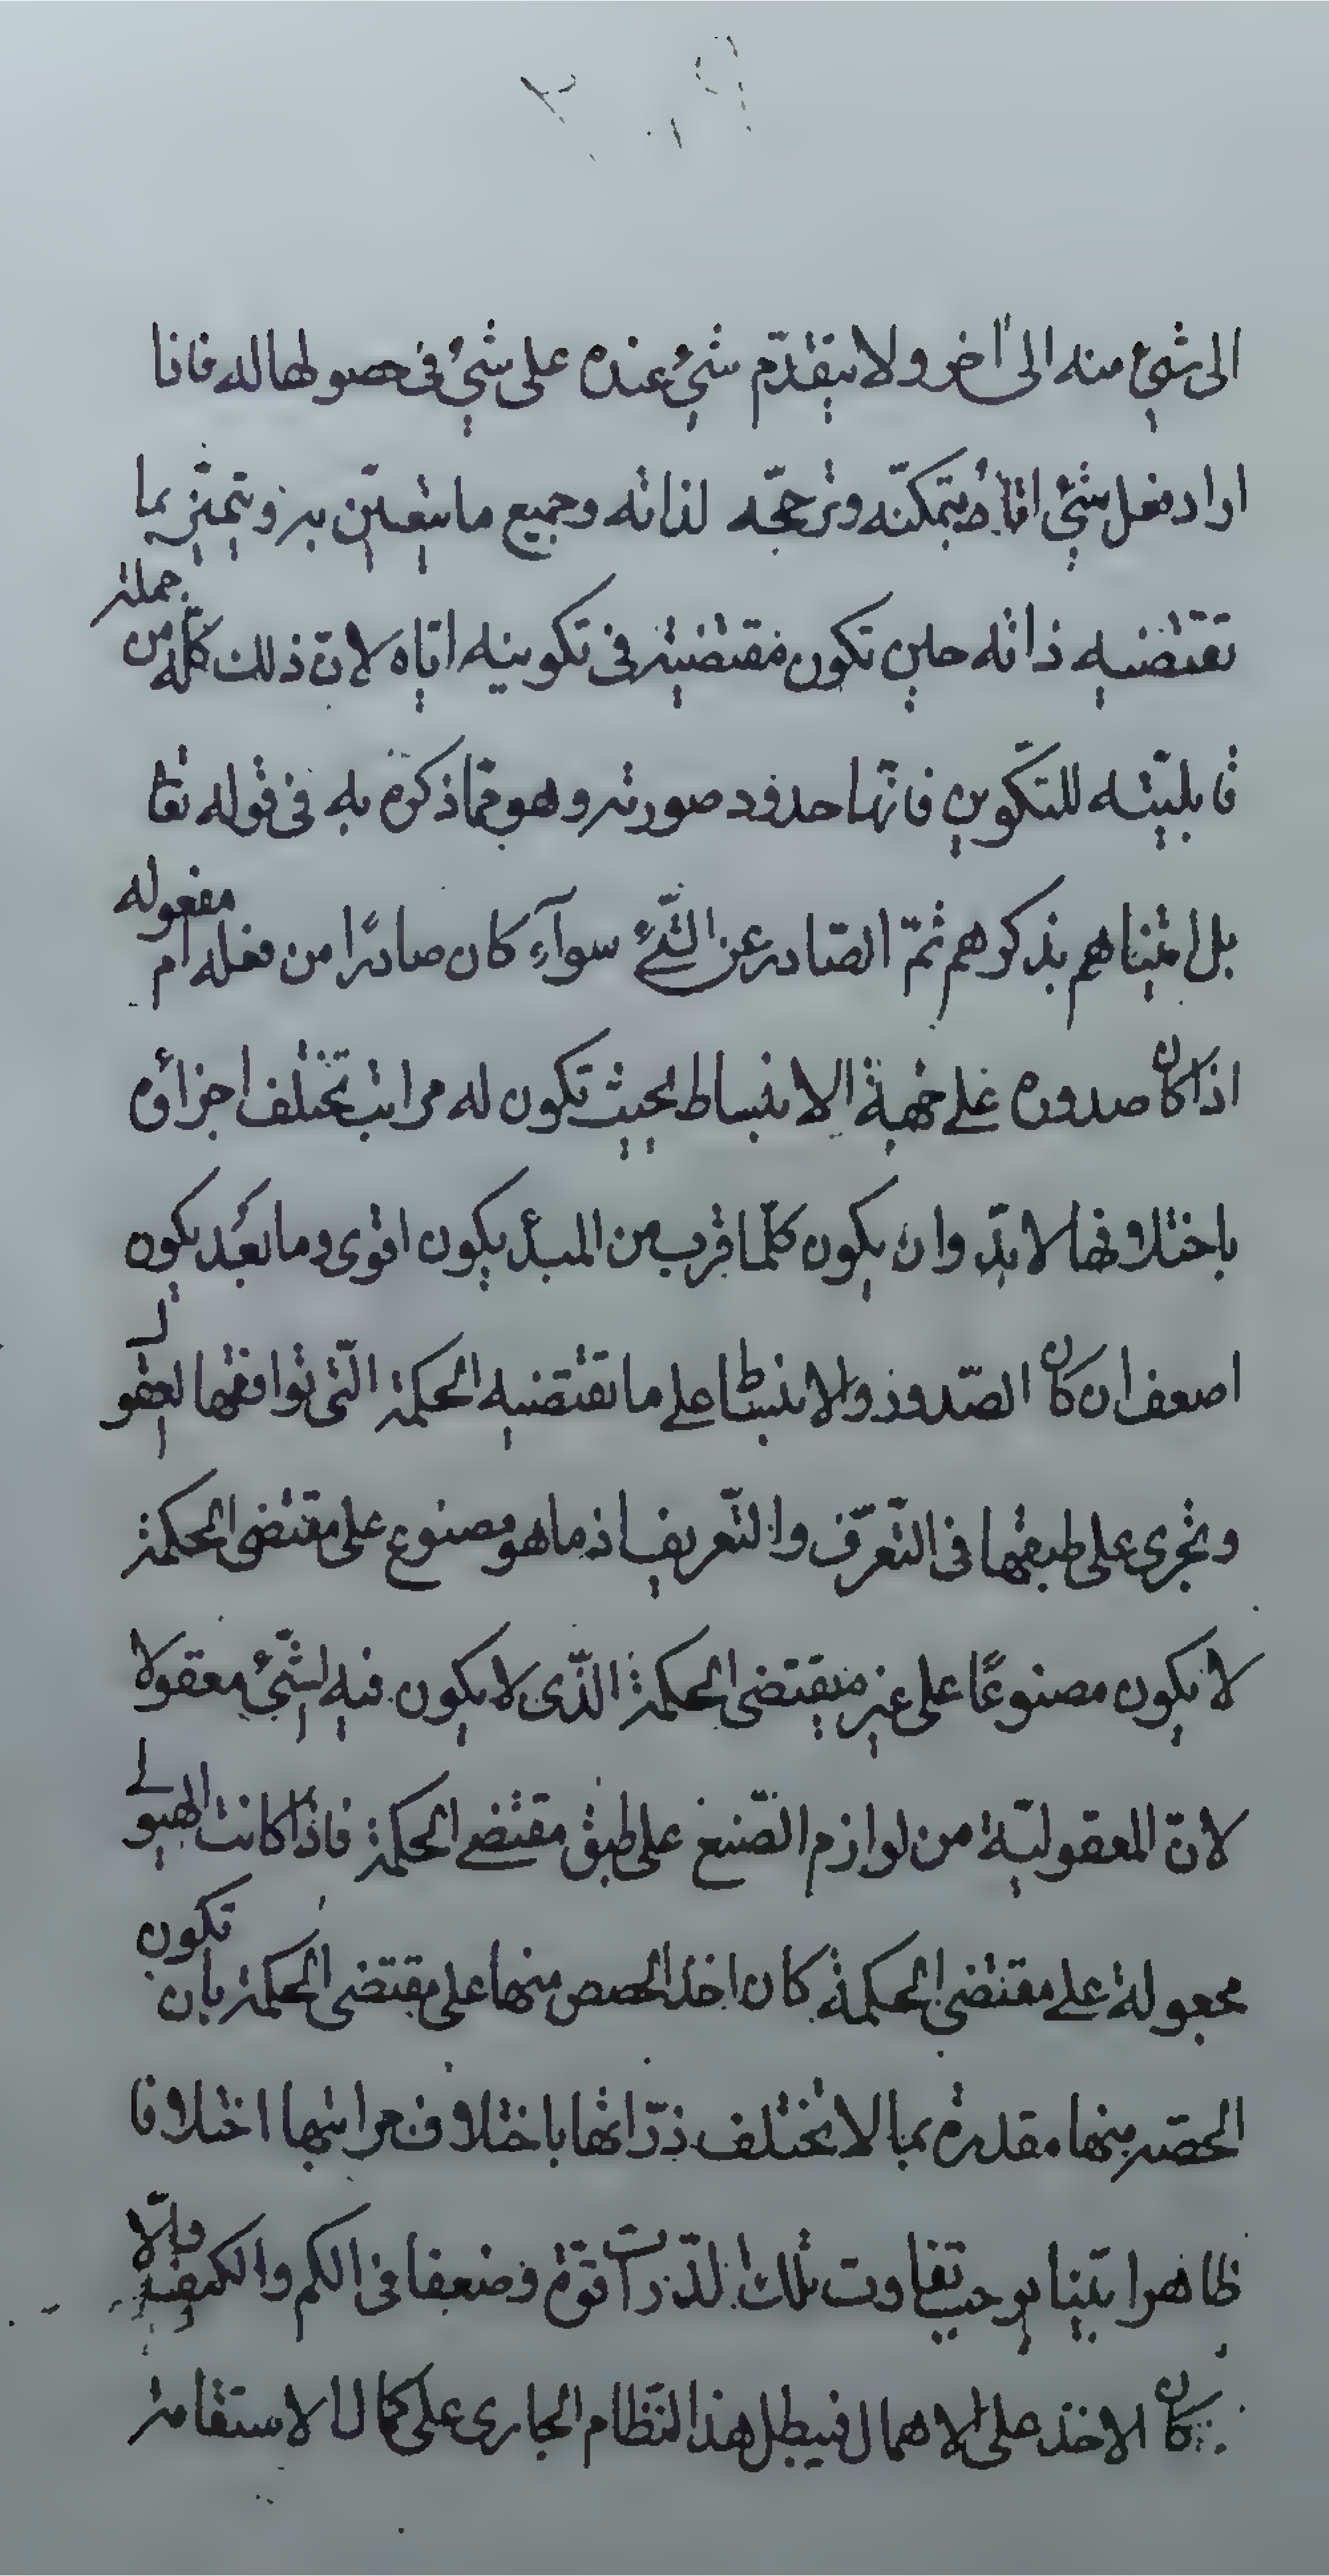 الى شئ منه الى اخر ولا يتقدّم شئ عنده على شئ فى حصولها له فاذا
اراد فعل شئ اتاه بتمكنّه وترجحّه لذاته وجميع ما يتعيّن به ويتميّز بما
تقتضيه ذاته حين تكون مقتضية فى تكوينه ايّاه لانّ ذلك كلّه من جملة
قابليّته للتكّوين فانّها حدود صورته وهو ممّا ذكره به فى قوله تعا
بل اتيناهم بذكرهم ثمّ الصّادر عن الشّئ سوآء كان صادرًا من فعله ام مفعوله
اذا كان صدوره على جهة الانبساط بحيث تكون له مراتب تختلف اجزاؤه
باختلافها لا بدّ وان يكون كلّما قرب من المبدأ يكون اقوى وما بعُد يكون
اضعف ان كان الصّدور والانبساط على ما تقتضيه الحكمة الّتى توافقها العقول
وتجرى على طبقها فى التّعرّف والتّعريف اذ ما هو مصنوع على مقتضى الحكمة
لا يكون مصنوعًا على غير مقتضى الحكمة الذّى لا يكون فيه الشّئ معقولا
لانّ المعقوليّة من لوازم الصّنع على طبق مقتضى الحكمة فاذا كانت الهيولى
مجعولة على مقتضى الحكمة كان اخذ الحصص منها على مقتضى الحكمة بان تكون
الحصّة منها مقدرة بما لا تختلف ذرّاتها باختلاف مراتبها اختلافا
ظاهرا بيّنا يوجب تفاوت تلك الذّرات قوّة وضعفا فى الكم والكيف والّا
كان الاخذ على الاهمال فيبطل هذا النّظام الجارى على كمال الاستقامة